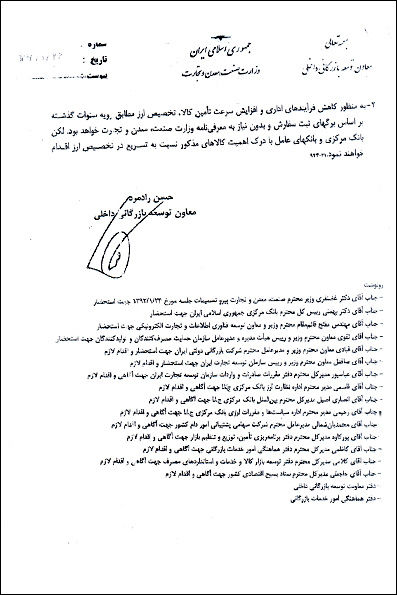 بسمه تعالی
جمهوری اسلامی ایران
شماره :
معاون توسعه بازرگانی داخلی
وزارت صنعت، معدن و تجارت
تاریخ :
پیوست :
۲- به منظور کاهش فرآیندهای اداری و افزایش سرعت تأمین کالا، تخصیص ارز مطابق رویه سنوات گذشته
بر اساس برگهای ثبت سفارش و بدون نیاز به معرفی‌نامه وزارت صنعت، معدن و تجارت خواهد بود. لکن
بانک مرکزی و بانکهای عامل با درک اهمیت کالاهای مذکور نسبت به تسریع در تخصیص ارز اقدام
خواهند نمود.
حسن رادمرد
معاون توسعه بازرگانی داخلی
رونوشت
- جناب آقای دکتر غضنفری وزیر محترم صنعت، معدن و تجارت پیرو تصمیمات جلسه مورخ ۱۳۹۲/۱/۲۳ جهت استحضار
- جناب آقای دکتر بهمنی رییس کل محترم بانک مرکزی جمهوری اسلامی ایران جهت استحضار
- جناب آقای مهندس مفتح قائم‌مقام محترم وزیر و معاون توسعه فناوری اطلاعات و تجارت الکترونیکی جهت استحضار
- جناب آقای تقوی معاون محترم وزیر و رییس هیأت مدیره و مدیرعامل سازمان حمایت مصرف‌کنندگان و تولیدکنندگان جهت استحضار
- جناب آقای قبادی معاون محترم وزیر و مدیرعامل محترم شرکت بازرگانی دولتی ایران جهت استحضار و اقدام لازم
- جناب آقای صافدل معاون محترم وزیر و رییس سازمان توسعه تجارت ایران جهت استحضار و اقدام لازم
- جناب آقای عباسپور مدیرکل محترم دفتر مقررات صادرات و واردات سازمان توسعه تجارت ایران جهت آگاهی و اقدام لازم
- جناب آقای قاسمی مدیر محترم اداره نظارت ارز بانک مرکزی ج.ا.ا جهت آگاهی و اقدام لازم
- جناب آقای انصاری اصیل مدیرکل محترم بین‌الملل بانک مرکزی ج.ا.ا جهت آگاهی و اقدام لازم
- جناب آقای رحیمی مدیر محترم اداره سیاستها و مقررات ارزی بانک مرکزی ج.ا.ا جهت آگاهی و اقدام لازم
- جناب آقای محمدیان‌شمالی مدیرعامل محترم شرکت سهامی پشتیبانی امور دام کشور جهت آگاهی و اقدام لازم
- جناب آقای پورکاوه مدیرکل محترم دفتر برنامه‌ریزی تأمین، توزیع و تنظیم بازار جهت آگاهی و اقدام لازم
- جناب آقای کاظمی مدیرکل محترم دفتر هماهنگی امور خدمات بازرگانی جهت آگاهی و اقدام لازم
- جناب آقای کلامی مدیرکل محترم دفتر توسعه بازار کالا و خدمات و استانداردهای مصرف جهت آگاهی و اقدام لازم
- جناب آقای حاجعلی مدیرکل محترم ستاد بسیج اقتصادی کشور جهت آگاهی و اقدام لازم
- دفتر معاونت توسعه بازرگانی داخلی
- دفتر هماهنگی امور خدمات بازرگانی